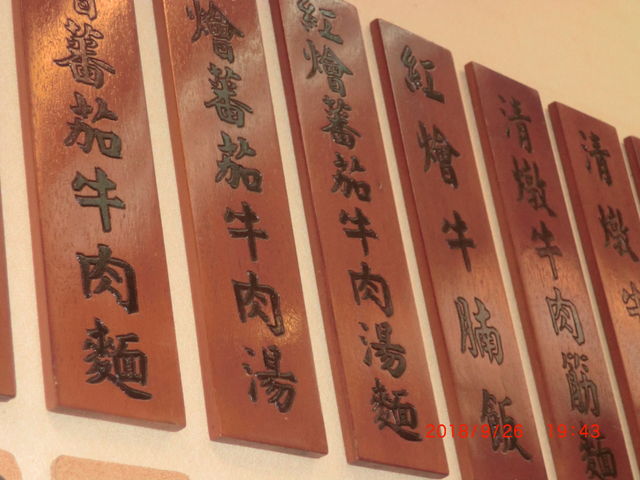 蕃茄牛肉麵
燴蕃茄牛肉湯
紅燴蕃茄牛肉湯麵
紅燴牛腩飯
清燉牛肉筋麵
清燉牛
2018/9/26 19:43